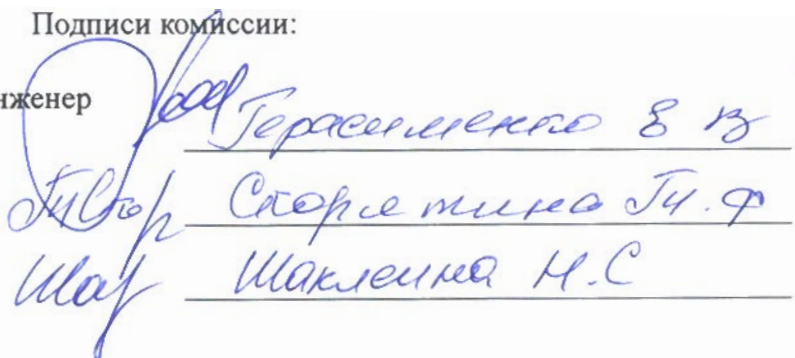 Подписи комиссии:
нженер Герасименко Е В
Скорятина Т. Ф
Шаклеина Н. С